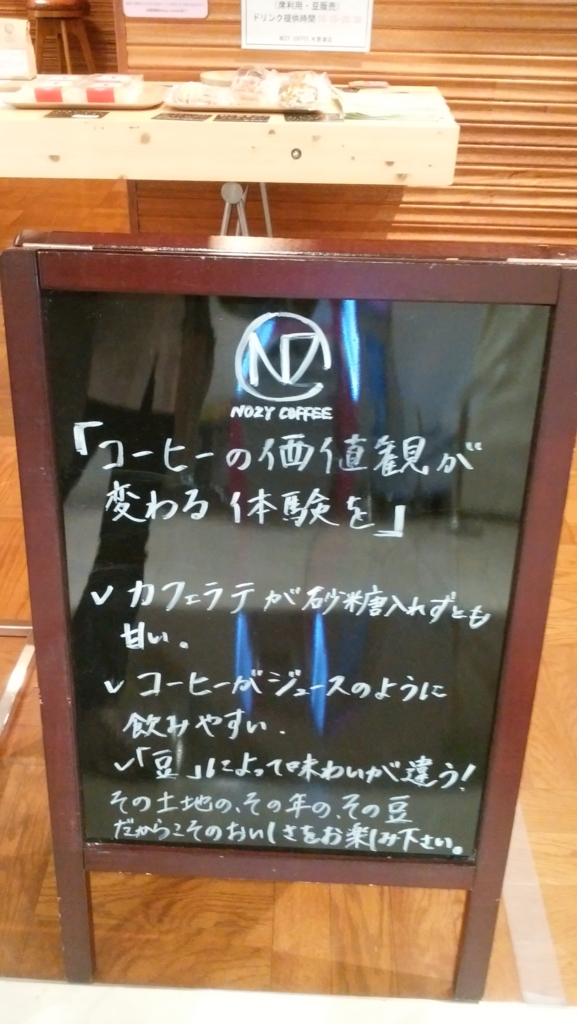 ドリンク提供時間
NZ
NOZY COFFEE
「コーヒーの価値観が
変わる体験を」
✓ カフェラテが砂糖入れずとも
甘い。
✓ コーヒーがジュースのように
飲みやすい.
✓「豆」によって味わいが違う!
その土地の、その年の、その豆
だからこそのおいしさをお楽しみ下さい。